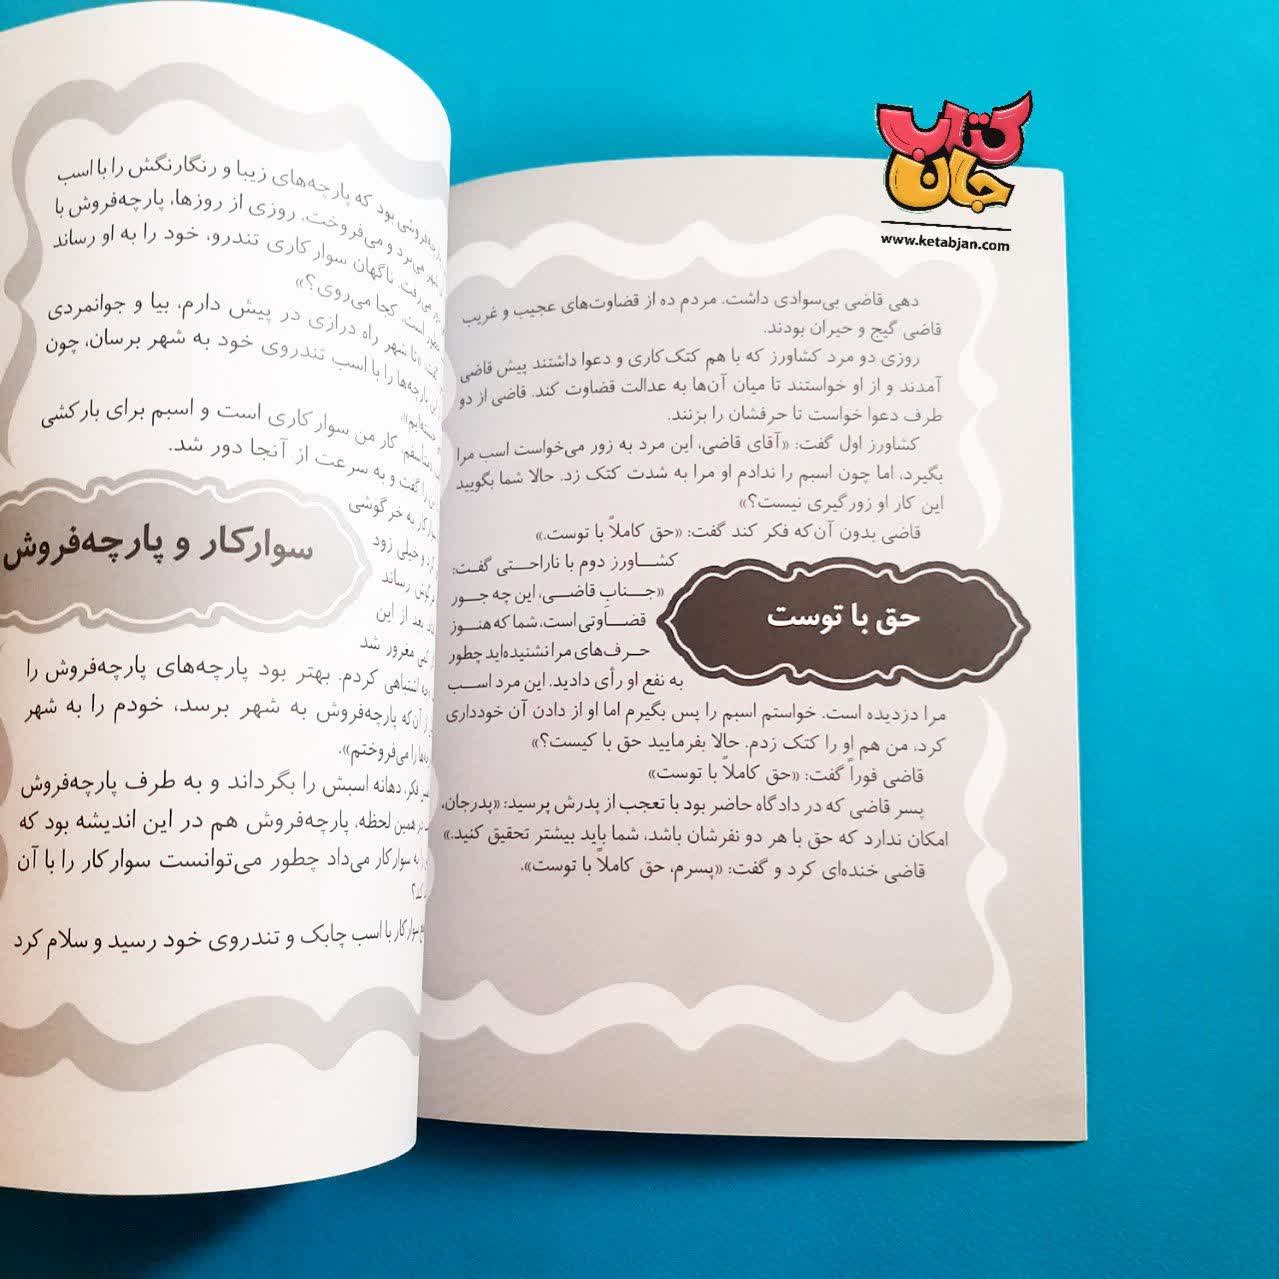 کتاب جان
www.ketabjan.com
دهی قاضی بی‌سوادی داشت. مردم ده از قضاوت‌های عجیب و غریب
قاضی گیج و حیران بودند.
روزی دو مرد کشاورز که با هم کتک‌کاری و دعوا داشتند پیش قاضی
آمدند و از او خواستند تا میان آن‌ها به عدالت قضاوت کند. قاضی از دو
طرف دعوا خواست تا حرفشان را بزنند.
کشاورز اول گفت: «آقای قاضی، این مرد به زور می‌خواست اسب مرا
بگیرد، اما چون اسبم را ندادم او مرا به شدت کتک زد. حالا شما بگویید
این کار او زورگیری نیست؟»
قاضی بدون آن‌که فکر کند گفت: «حق کاملاً با توست.»
کشاورز دوم با ناراحتی گفت:
«جناب قاضی، این چه جور
قضاوتی است، شما که هنوز
حرف‌های مرا نشنیده‌اید چطور
به نفع او رأی دادید. این مرد اسب
مرا دزدیده است. خواستم اسبم را پس بگیرم اما او از دادن آن خودداری
کرد، من هم او را کتک زدم. حالا بفرمایید حق با کیست؟»
قاضی فوراً گفت: «حق کاملاً با توست»
پسر قاضی که در دادگاه حاضر بود با تعجب از پدرش پرسید: «پدرجان،
امکان ندارد که حق با هر دو نفرشان باشد، شما باید بیشتر تحقیق کنید.»
قاضی خنده‌ای کرد و گفت: «پسرم، حق کاملاً با توست».
حق با توست
بود که پارچه‌های زیبا و رنگارنگش را با اسب
می‌برد و می‌فروخت. روزی از روزها، پارچه‌فروش با
می‌رفت. ناگهان سوارکاری تندرو، خود را به او رساند
است. کجا می‌روی؟»
تا شهر راه درازی در پیش دارم، بیا و جوانمردی
پارچه‌ها را با اسب تندروی خود به شهر برسان، چون
کار من سوارکاری است و اسبم برای بارکشی
را گفت و به سرعت از آنجا دور شد.
به خرگوشی
و خیلی زود
رساند
بعد از این
مغرور شد
سوارکار و پارچه‌فروش
اشتباهی کردم. بهتر بود پارچه‌های پارچه‌فروش را
از آن‌که پارچه‌فروش به شهر برسد، خودم را به شهر
را می‌فروختم».
فکر، دهانه اسبش را بگرداند و به طرف پارچه‌فروش
همین لحظه، پارچه‌فروش هم در این اندیشه بود که
به سوارکار می‌داد چطور می‌توانست سوارکار را با آن
سوارکار با اسب چابک و تندروی خود رسید و سلام کرد